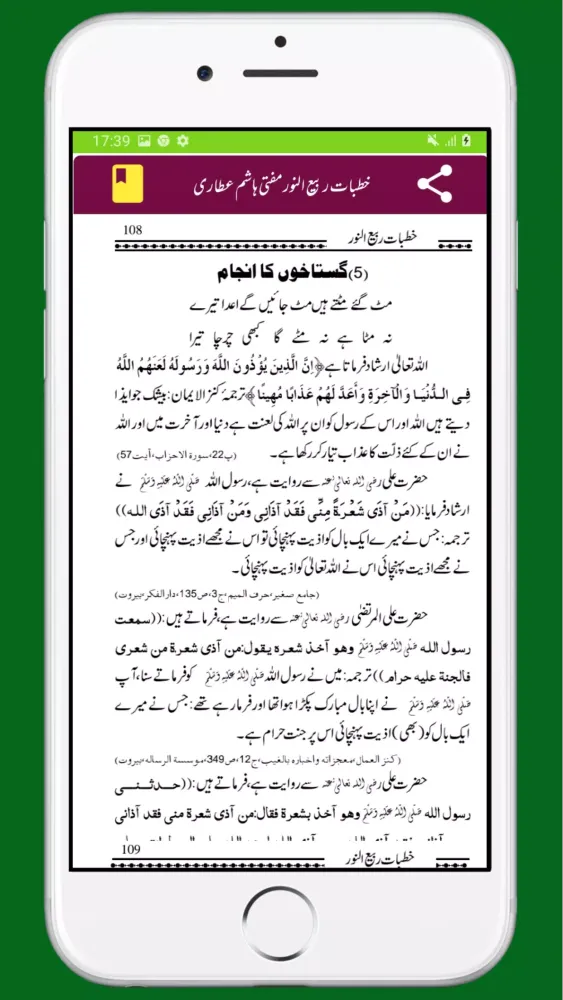 17:39
خطبات ربیع النور مفتی ہاشم عطاری
108 خطبات ربیع النور
(5) گستاخوں کا انجام
مٹ گئے مٹتے ہیں مٹ جائیں گے اعدا تیرے
نہ مٹا ہے نہ مٹے گا کبھی چرچا تیرا
اللہ تعالیٰ ارشاد فرماتا ہے ﴿اِنَّ الَّذِينَ يُؤْذُونَ اللَّهَ وَرَسُولَهُ لَعَنَهُمُ اللَّهُ
فِي الدُّنْيَا وَالْآخِرَةِ وَأَعَدَّ لَهُمْ عَذَابًا مُهِينًا﴾ ترجمۂ کنز الایمان: بیشک جو ایذا
دیتے ہیں اللہ اور اس کے رسول کو ان پر اللہ کی لعنت ہے دنیا اور آخرت میں اور اللہ
نے ان کے لئے ذلّت کا عذاب تیار کر رکھا ہے۔ (پ22،سورۃ الاحزاب،آیت57)
حضرت علی رضی اللہ تعالیٰ عنہ سے روایت ہے، رسول اللہ صَلَّى اللهُ عَلَيْهِ وَسَلَّمَ نے
ارشاد فرمایا: ((مَنْ آذَى شَعْرَةً مِنِّي فَقَدْ آذَانِي وَمَنْ آذَانِي فَقَدْ آذَى الله))
ترجمہ: جس نے میرے ایک بال کو اذیت پہنچائی تو اس نے مجھے اذیت پہنچائی اور جس
نے مجھے اذیت پہنچائی اس نے اللہ تعالیٰ کو اذیت پہنچائی۔
(جامع صغیر،حرف المیم،ج3،ص135،دارالفکر،بیروت)
حضرت علی المرتضیٰ رضی اللہ تعالیٰ عنہ سے روایت ہے، فرماتے ہیں: ((سمعت
رسول الله صَلَّى اللهُ عَلَيْهِ وَسَلَّمَ وهو آخذ شعره يقول:من آذى شعرة من شعرى
فالجنة عليه حرام)) ترجمہ: میں نے رسول اللہ صَلَّى اللهُ عَلَيْهِ وَسَلَّمَ کو فرماتے سنا، آپ
صَلَّى اللهُ عَلَيْهِ وَسَلَّمَ نے اپنا بال مبارک پکڑا ہوا تھا اور فرما رہے تھے: جس نے میرے
ایک بال کو (بھی) اذیت پہنچائی اس پر جنت حرام ہے۔
(کنز العمال،معجزاتہ واخبارہ بالغیب،ج12،ص349،موسسة الرسالہ،بیروت)
حضرت علی رضی اللہ تعالیٰ عنہ سے روایت ہے، فرماتے ہیں: ((حدثنی
رسول الله صَلَّى اللهُ عَلَيْهِ وَسَلَّمَ وهو آخذ بشعرة فقال:من آذى شعرة منى فقد آذانى
109 خطبات ربیع النور